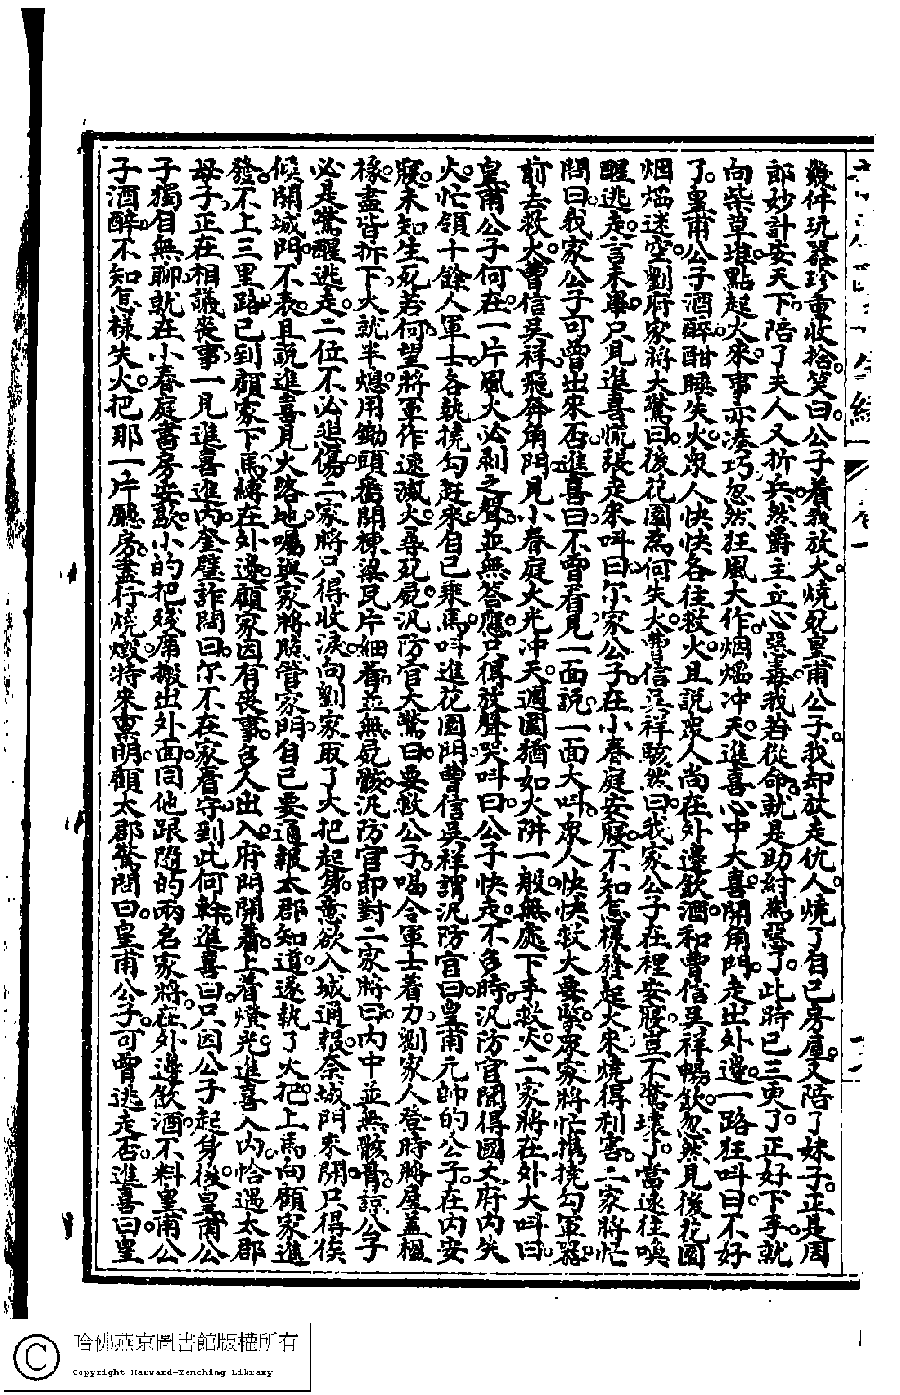 幾件玩器珍重收拾笑曰公子着我放火燒死皇甫公子我却放走仇人燒了自己房屋又陪了妹子正是周
郎妙計安天下陪了夫人又折兵然爵主立心惡毒我若從命就是助紂為惡了此時已三更了正好下手就
向柴草堆點起火來事亦湊巧忽然狂風大作烟熖冲天進喜心中大喜開角門走出外邊一路狂呌曰不好
了皇甫公子酒醉酣睡失火衆人快快各往救火且説衆人尚在外邊飲酒和曹信吳祥暢飲忽然見後花園
烟熖迷空劉府家將大驚曰後花園為何失火曹信吳祥駭然曰我家公子在裡安寢莫不驚壞了當速往喚
醒逃走言未畢只見進喜慌張走來呌曰尔家公子在小春庭安寢不知怎樣發起火來燒得利害二家將忙
問曰我家公子可曾出來否進喜曰不曾看見一面說一面大呌衆人快快救火要緊衆家將忙携撓勾軍器
前去救火曹信吳祥飛奔角門見小春庭火光冲天週圍猶如火阱一般無處下手救火二家將在外大呌曰
皇甫公子何在一片風火必剥之聲並無答應只得放聲哭呌曰公子快走不多時汎防官聞得國丈府内失
火忙領十餘人軍士各執撓勾赶來自己乘馬呌進花園門曹信吳祥謂汎防官曰皇甫元帥的公子在内安
寢未知生死若何望將軍作速滅火尋死屍汎防官大驚曰要救公子喝令軍士着力劉家人登時將屋盖榲
椽盡皆拆下火就半熄用鋤頭畨開棟梁瓦片細看並無屍骸汎防官即對二家將曰内中並無骸骨諒公子
必是驚醒逃走二位不必悲傷二家將只得收淚向劉家取了火把起身意欲入城通報奈城門未開只得俟
候開城門不表且説進喜見火落地囑與家將照管家明自己要通報太郡知道遂執了火把上馬向顧家進
發不上三里路已到顧家下馬縛在外邊顧家因有喪事多人出入府門開着上着燈光進喜入内恰遇太郡
母子正在相議喪事一見進喜進内奎璧詐問曰尔不在家看守到此何幹進喜曰只因公子起身後皇甫公
子獨自無聊就在小春庭書房安歇小的把殘席搬出外面同他跟隨的兩名家將在外邊飲酒不料皇甫公
子酒醉不知怎樣失火把那一片廳房盡行燒燬特來稟明顧太郡驚問曰皇甫公子可曾逃走否進喜曰皇
哈佛燕京圖書館版權所有
Copyright Harvard-Yenching Library